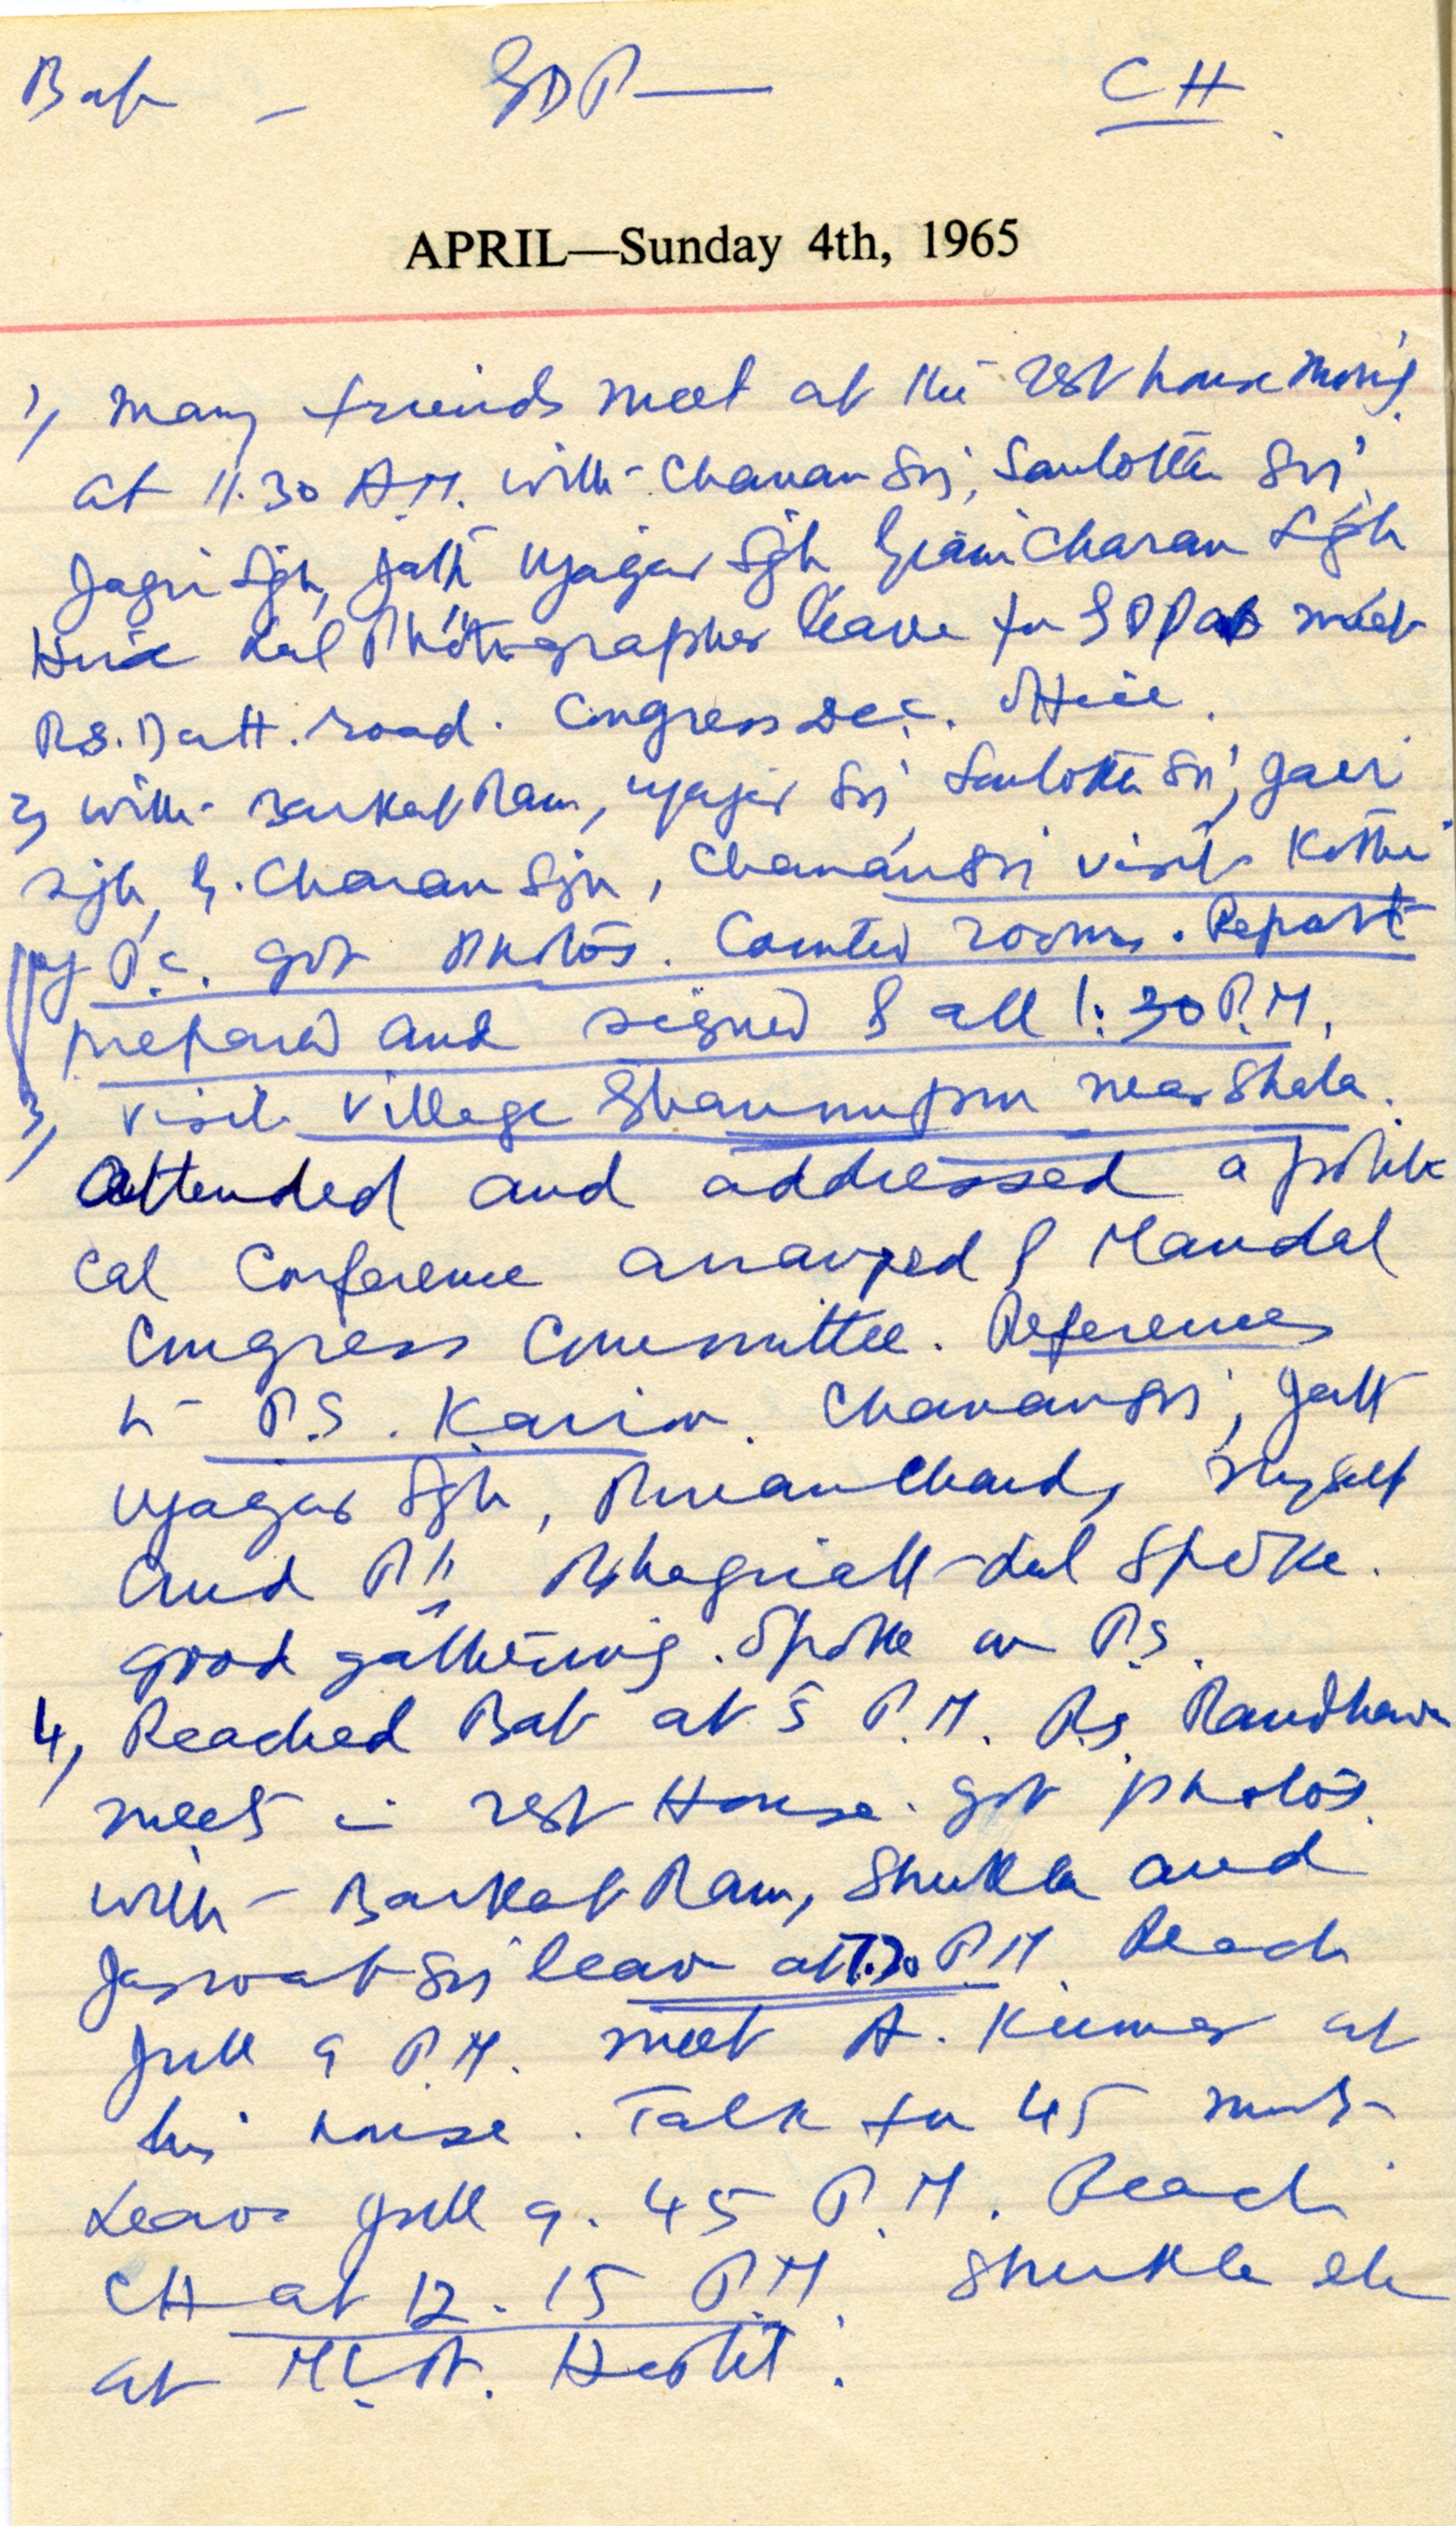 Bat - GDP — CH
APRIL—Sunday 4th, 1965
1, Many friends meet at the rest house morng
at 11.30 A.M. with Chanan Sri, Santokh Sri
Jagri Sgh, Jatt Ujagar Sgh Giani Charan Sgh
Lal Photographer leave for GDP meet
R.S. Datt. road. Congress Sec. Office.
2, with Barkat Ram, Ujagar Sri Santokh Sri, Jagri
Sgh, G. Charan Sgh, Chanan Sri visit Kothi
of P.S. got Photos. Counted rooms. Report
prepared and signed & all 1:30 P.M.
3, visit village near Shala.
Attended and addressed a politi
cal Conference arranged & Mandal
Congress Committee. References
to P.S. Kairon. Chanan Sri, Jatt
Ujagar Sgh, Puran Chand, Myself
and Pt. Lal Spoke.
good gathering. Spoke on P.S.
4, Reached Bat at 5 P.M. P.S. Randhawa
meets in rest House. got photos
with Barkat Ram, Shukla and
Jaswat Sri leave at 7.30 P.M. Reach
Jull 9 P.M. meet A. Kumar at
his house. Talk for 45 mnts-
Leave Jull 9.45 P.M. Reach
CH at 12.15 P.M. Shukla etc
at MLA. Hostel.